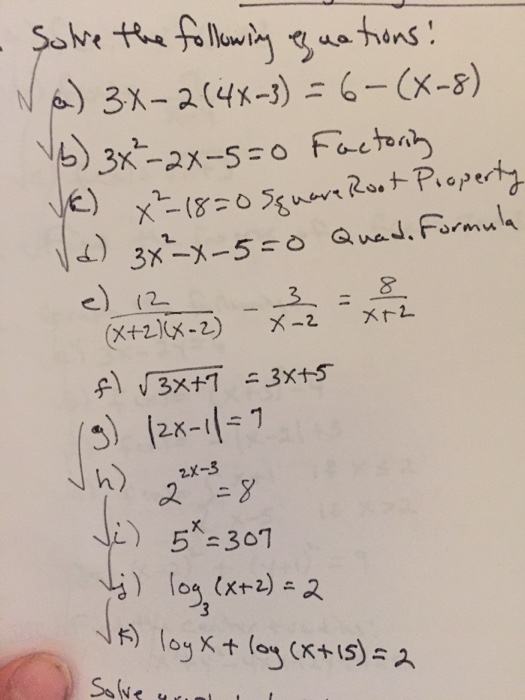 Solve the following equations:
√ a) 3x-2(4x-3) = 6-(x-8)
√ b) 3x²-2x-5=0 Factoring
√ c) x²-18=0 Square Root Property
√ d) 3x²-x-5=0 Quad. Formula
e) 12/((x+2)(x-2)) - 3/(x-2) = 8/(x+2)
f) √(3x+7) = 3x+5
g) |2x-1|=7
√ h) 2^(2x-3) = 8
√ i) 5^x = 307
√ j) log₃(x+2) = 2
√ k) log x + log(x+15) = 2
Solve